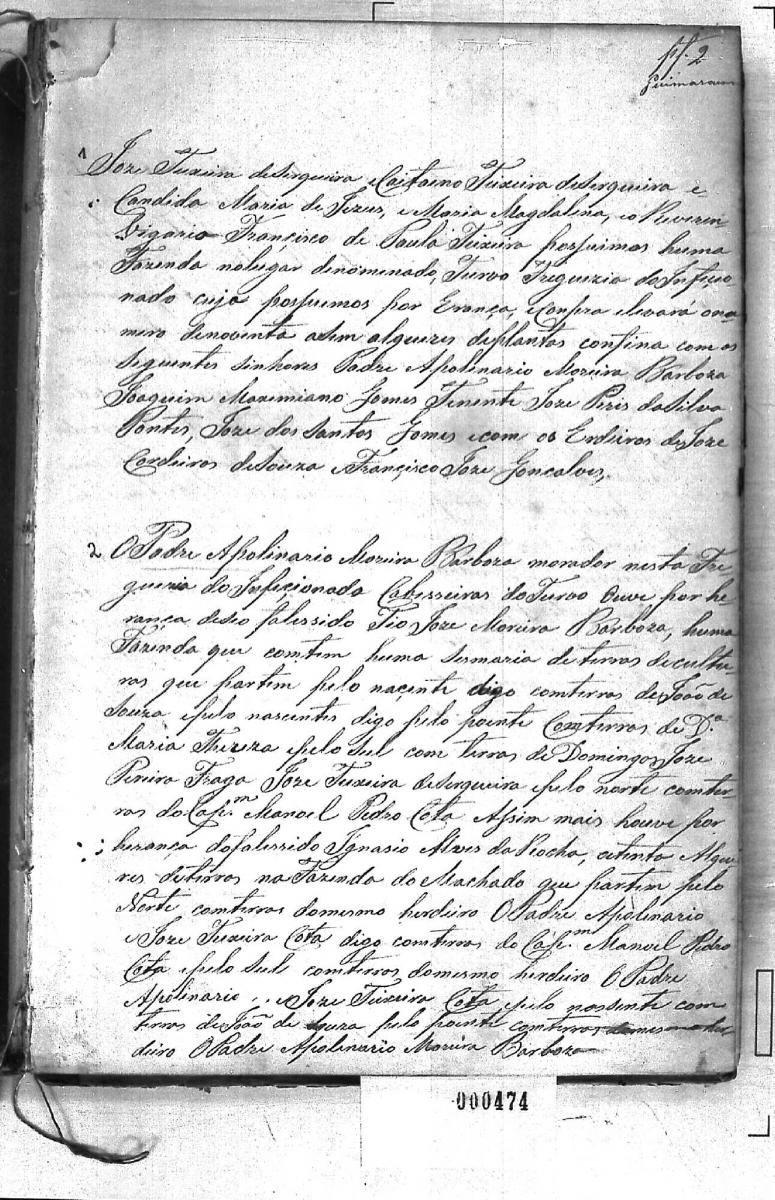 fl. 2
Guimaraens
1 Joze Teixeira desirqueira eCaetaeno Teixeira desirqueira e
Candida Maria de Jezus, e Maria Magdalena, eo Reveren
Vigario Françisco de Paula Teixeira possuimos huma
Fazenda nolugar denomenado, Turvo Freguezia do Inficio
nado cuja possuemos por Erança, eConpra elevará onu
mero denoventa asem alqueires deplantas confina com os
seguentes senhores Padre Apolinario Moreira Barboza
Joaquim Maxemiano Gomes Tenente Joze Piris da Silva
Pontes, Joze dos Santos Gomes ecom os Erdeiros de Joze
Cordeiros deSouza eFrançisco Joze Goncalves,
2 O Padre Apolinario Moreira Barboza morador nesta Fre
guezia do Infeçionado Cabesseiras do Turvo Ouve por he
rança deseo falessido Tio Joze Moreira Barboza, huma
Fazenda que comtem huma sesmaria de terras decultu
ras que partem pelo naçente digo comterras de João de
Souza epelo nascentes digo pelo poente Comterras de D.ª
Maria Thereza epelo Sul com terras de Domingos Joze
Pereira Fraga Joze Teixeira desirqueira epelo norte comter
ras do Cap.m Manoel Pedro Cota Assim mais houve por
herança dofalessido Ignasio Alves da Rocha, citenta Alque
res deterras na Fazenda do Machado que partem pelo
Norte comterras domesmo herdeiro O Padre Apolinario
eJoze Teixeira Cota digo comterras do Cap.m Manoel Pedro
Cota epelo Sul comterras domesmo herdeiro O Padre
Apolinario, e Joze Teixeira Cota epelo nassente com
terras de João de Souza pelo poente comterras domesmo her
deiro O Padre Apolinario Moreira Barboza
000474